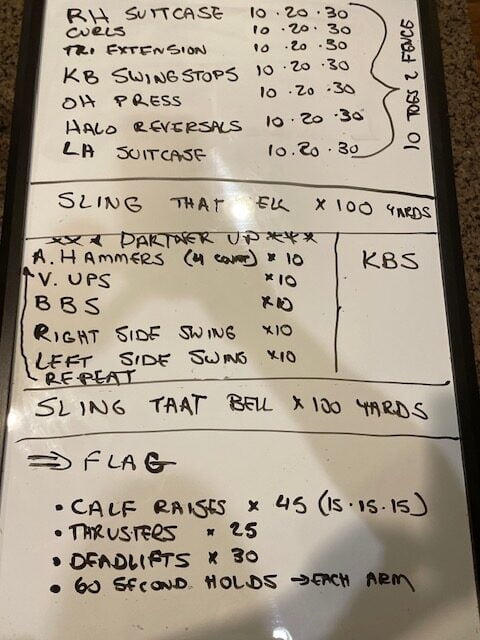 RH SUITCASE 10·20·30
CURLS 10·20·30
TRI EXTENSION 10·20·30
KB SWINGSTOPS 10·20·30
OH PRESS 10·20·30
HALO REVERSALS 10·20·30
LA SUITCASE 10·20·30
10 TOES 2 FENCE
SLING THAT BELL × 100 YARDS
*** PARTNER UP ***
A. HAMMERS (4 COUNT) × 10
V. UPS ×10
BBS ×10
RIGHT SIDE SWING ×10
LEFT SIDE SWING ×10
REPEAT
KBS
SLING THAT BELL × 100 YARDS
⇒ FLAG
• CALF RAISES × 45 (15·15·15)
• THRUSTERS × 25
• DEADLIFTS × 30
• 60 SECOND HOLDS → EACH ARM